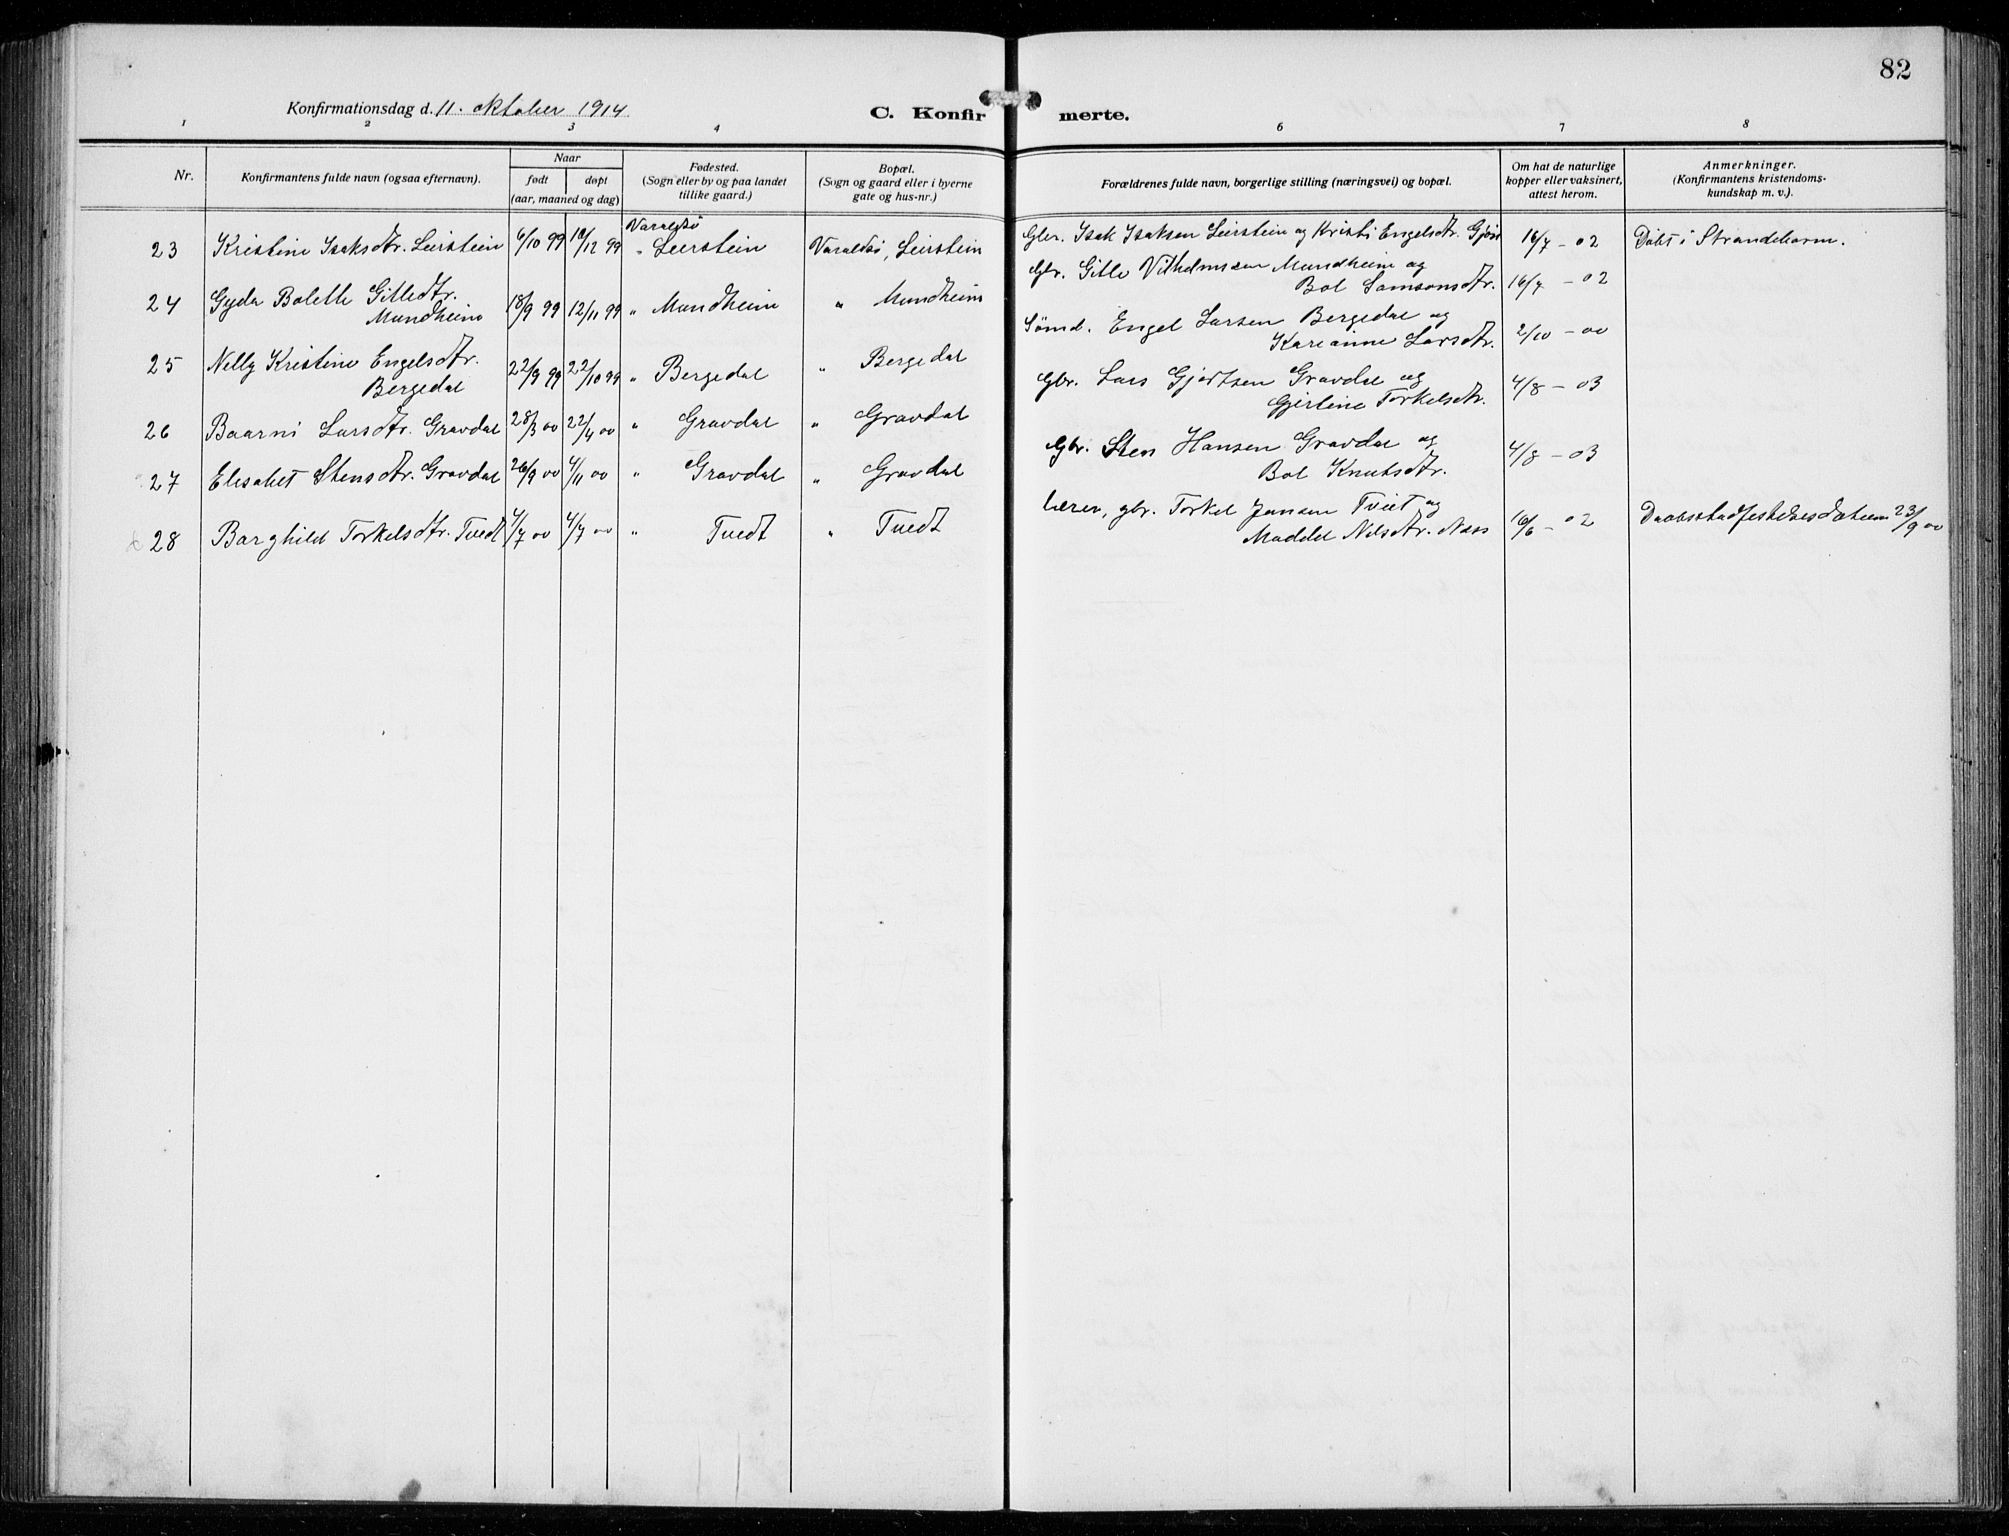 82
Konfirmationsdag d. 11. oktober 1914
C. Konfirmerte.
1 2 3 4 6 7 8
Nr.
Konfirmantens fulde navn (ogsaa efternavn).
Naar
født døpt
(aar, maaned og dag)
Fødested.
(Sogn eller by og paa landet
tillike gaard.)
Bopæl.
(Sogn og gaard eller i byerne
gate og hus-nr.)
Forældrenes fulde navn, borgerlige stilling (næringsvei) og bopæl.
Om hat de naturlige
kopper eller vaksinert,
attest herom.
Anmerkninger.
(Konfirmantens kristendoms-
kundskap m. v.).
Varaldsö
23 Kristine Isaksdtr. Leirstein 6/10 99 10/12 99 " Leirstein Varaldsö, Leirstein Gbr. Isak Isaksen Leirstein og Kristi Engelsdtr. 16/7 - 02 Döbt i Strandebarm.
24 Gyda Bolette Gitledtr.
Mundheim 18/9 99 12/11 99 " Mundheim " Mundheim Gbr. Gitle Vilhelmsen Mundheim og
Bol Samsonsdtr. 16/7 - 02
25 Nelly Kristine Engelsdtr.
Bergedal 22/9 99 22/10 99 " Bergedal " Bergedal Sömd. Engel Larsen Bergedal og
Karianne Larsdtr. 2/10 - 00
26 Baarni Larsdtr. Gravdal 28/3 00 22/4 00 " Gravdal " Gravdal Gbr. Lars Gjertsen Gravdal og
Gjertine Torkelsdtr. 4/8 - 03
27 Elisabet Stensdtr. Gravdal 26/9 00 4/11 00 " Gravdal " Gravdal Gbr. Sten Hansen Gravdal og
Bol Knutsdtr. 4/8 - 03
28 Barghild Torkelsdtr. Tvedt 4/7 00 4/7 00 " Tvedt " Tvedt Lærer, gbr. Torkel Jensen Tveit og
Maddel Nilsdtr. Næs 16/6 - 02 23/9 00